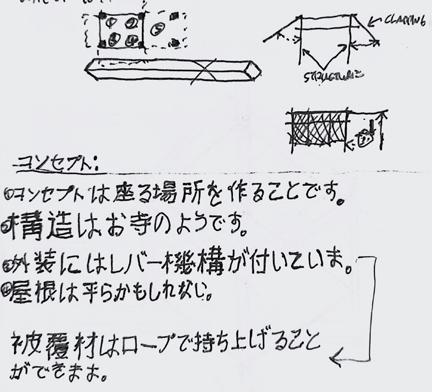 CLADDING
STRUCTURE
コンセプト:
①コンセプトは座る場所を作ることです。
②構造はお寺のようです。
③外装にはレバー機構が付いていま。
④屋根は平らかもしれない。
被覆材はロープで持ち上げること
ができまよ。